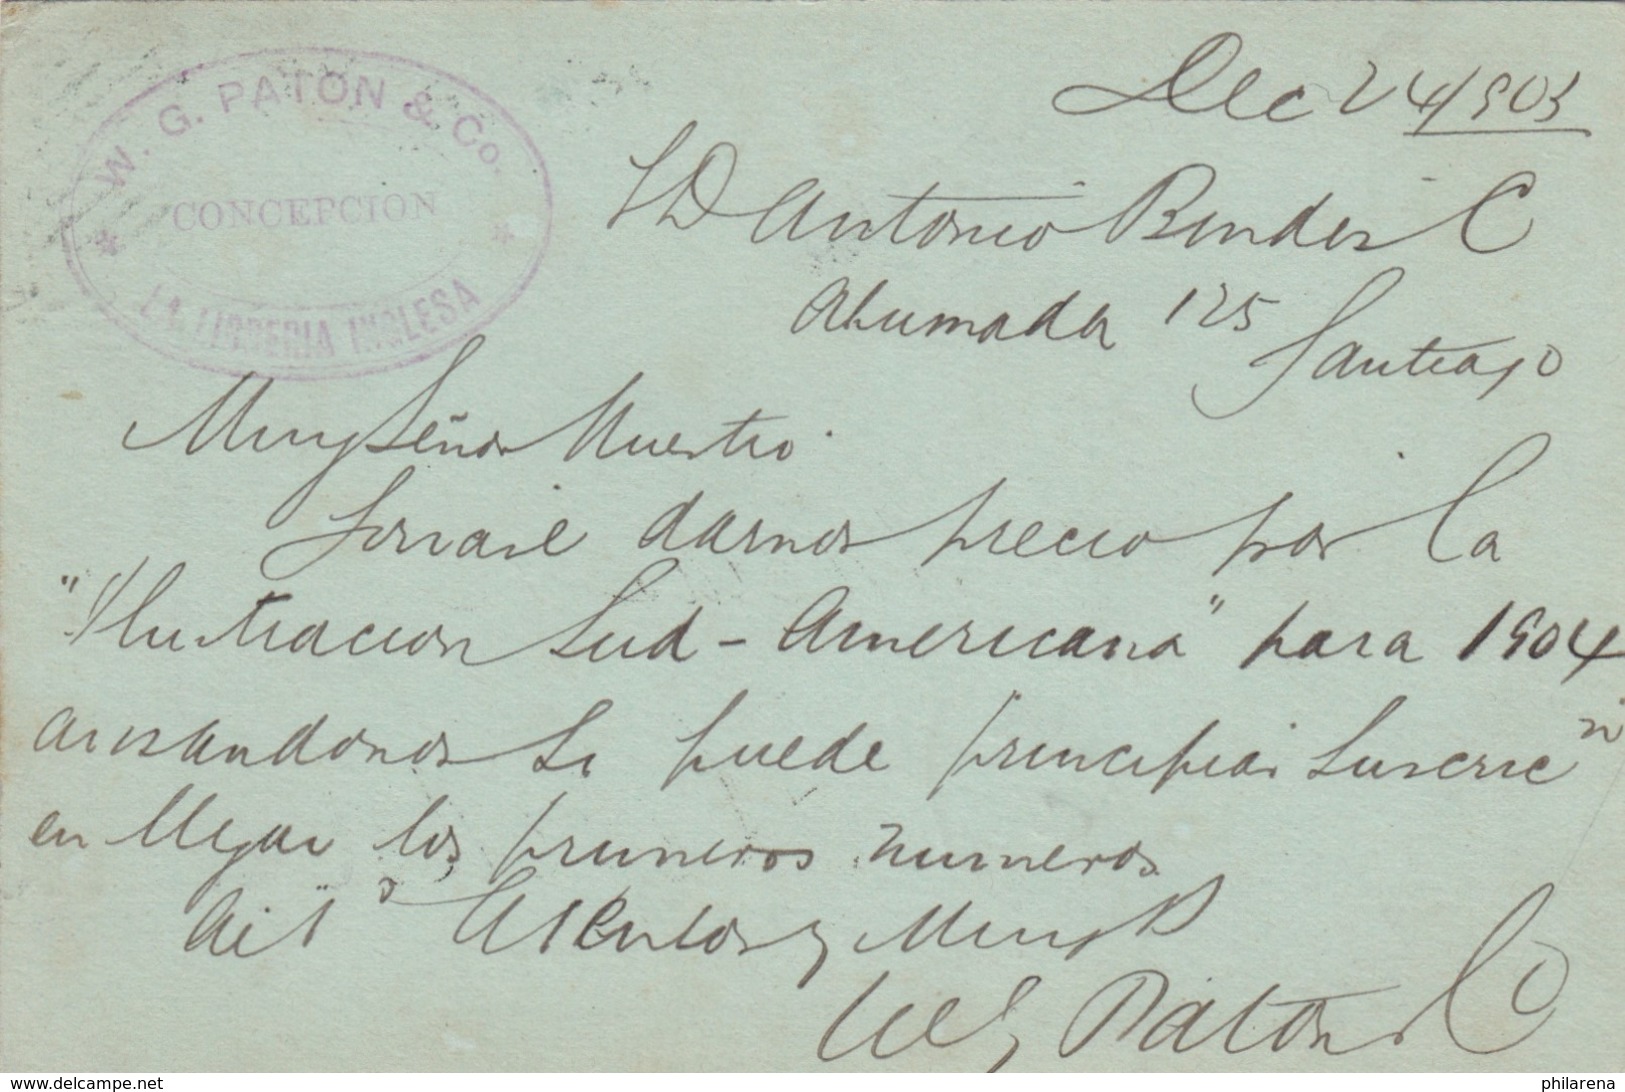 W. G. PATON & Co.
CONCEPCION
LA LIBRERIA INGLESA
Dec 24/903
SD Antonio Bender C
Ahumada 125
Santiago
Muy Señor Nuestro
Sirvase darnos precio por la
"Ilustracion Sud-Americana" para 1904
avisandonos si puede principiar
en llegar los primeros numeros
y Muy
WG Paton & Co
www.delcampe.net
philarena